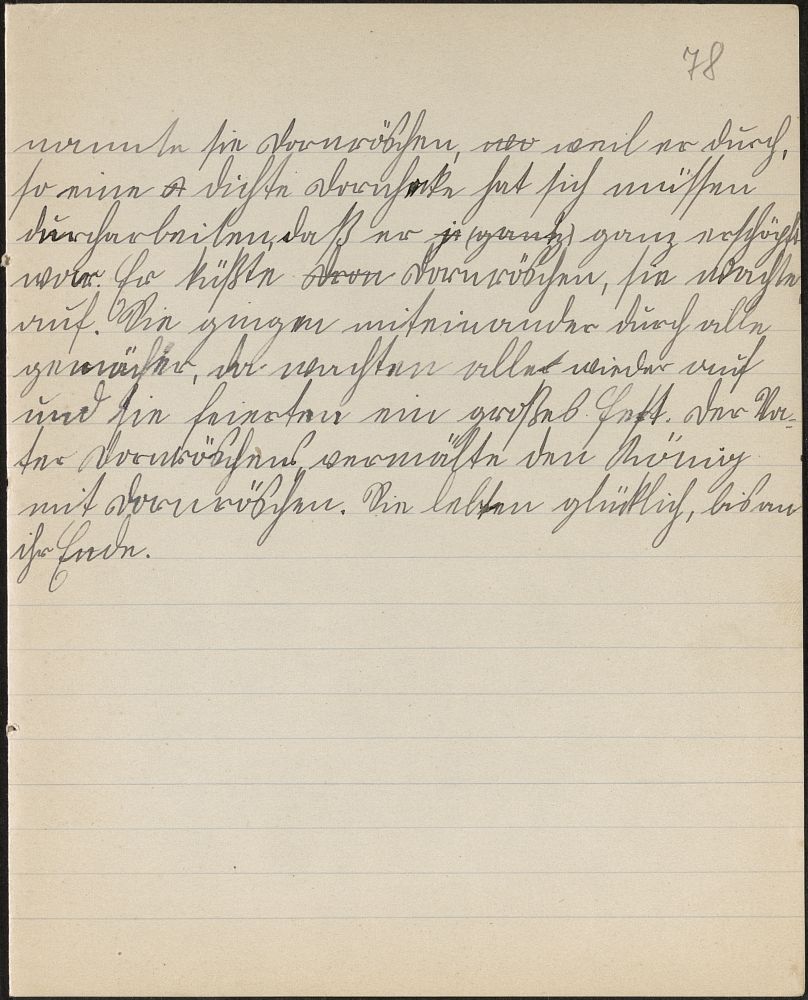 78
nannte sie Dornröschen, wo weil er durch,
so eine d dichte Dornhecke hat sich müssen
durcharbeiten, daß er ja (ganz) ganz erschöpft
war. Er küßte Dron Dornröschen, sie wachte
auf. Sie gingen miteinander durch alle
gemächer, da wachten alle wieder auf
und sie feierten ein großes Fest. Der Va-
ter Dornröschens vermälte den König
mit Dornröschen. Sie lebten glücklich, bis an
ihr Ende.